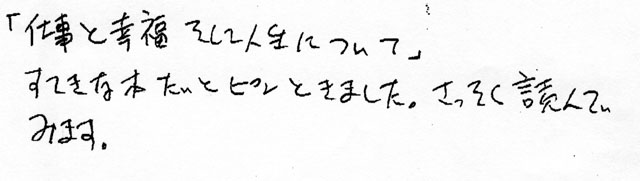 「仕事と幸福 そして人生について」
すてきな本だなとピンときました。さっそく読んでい
みます。